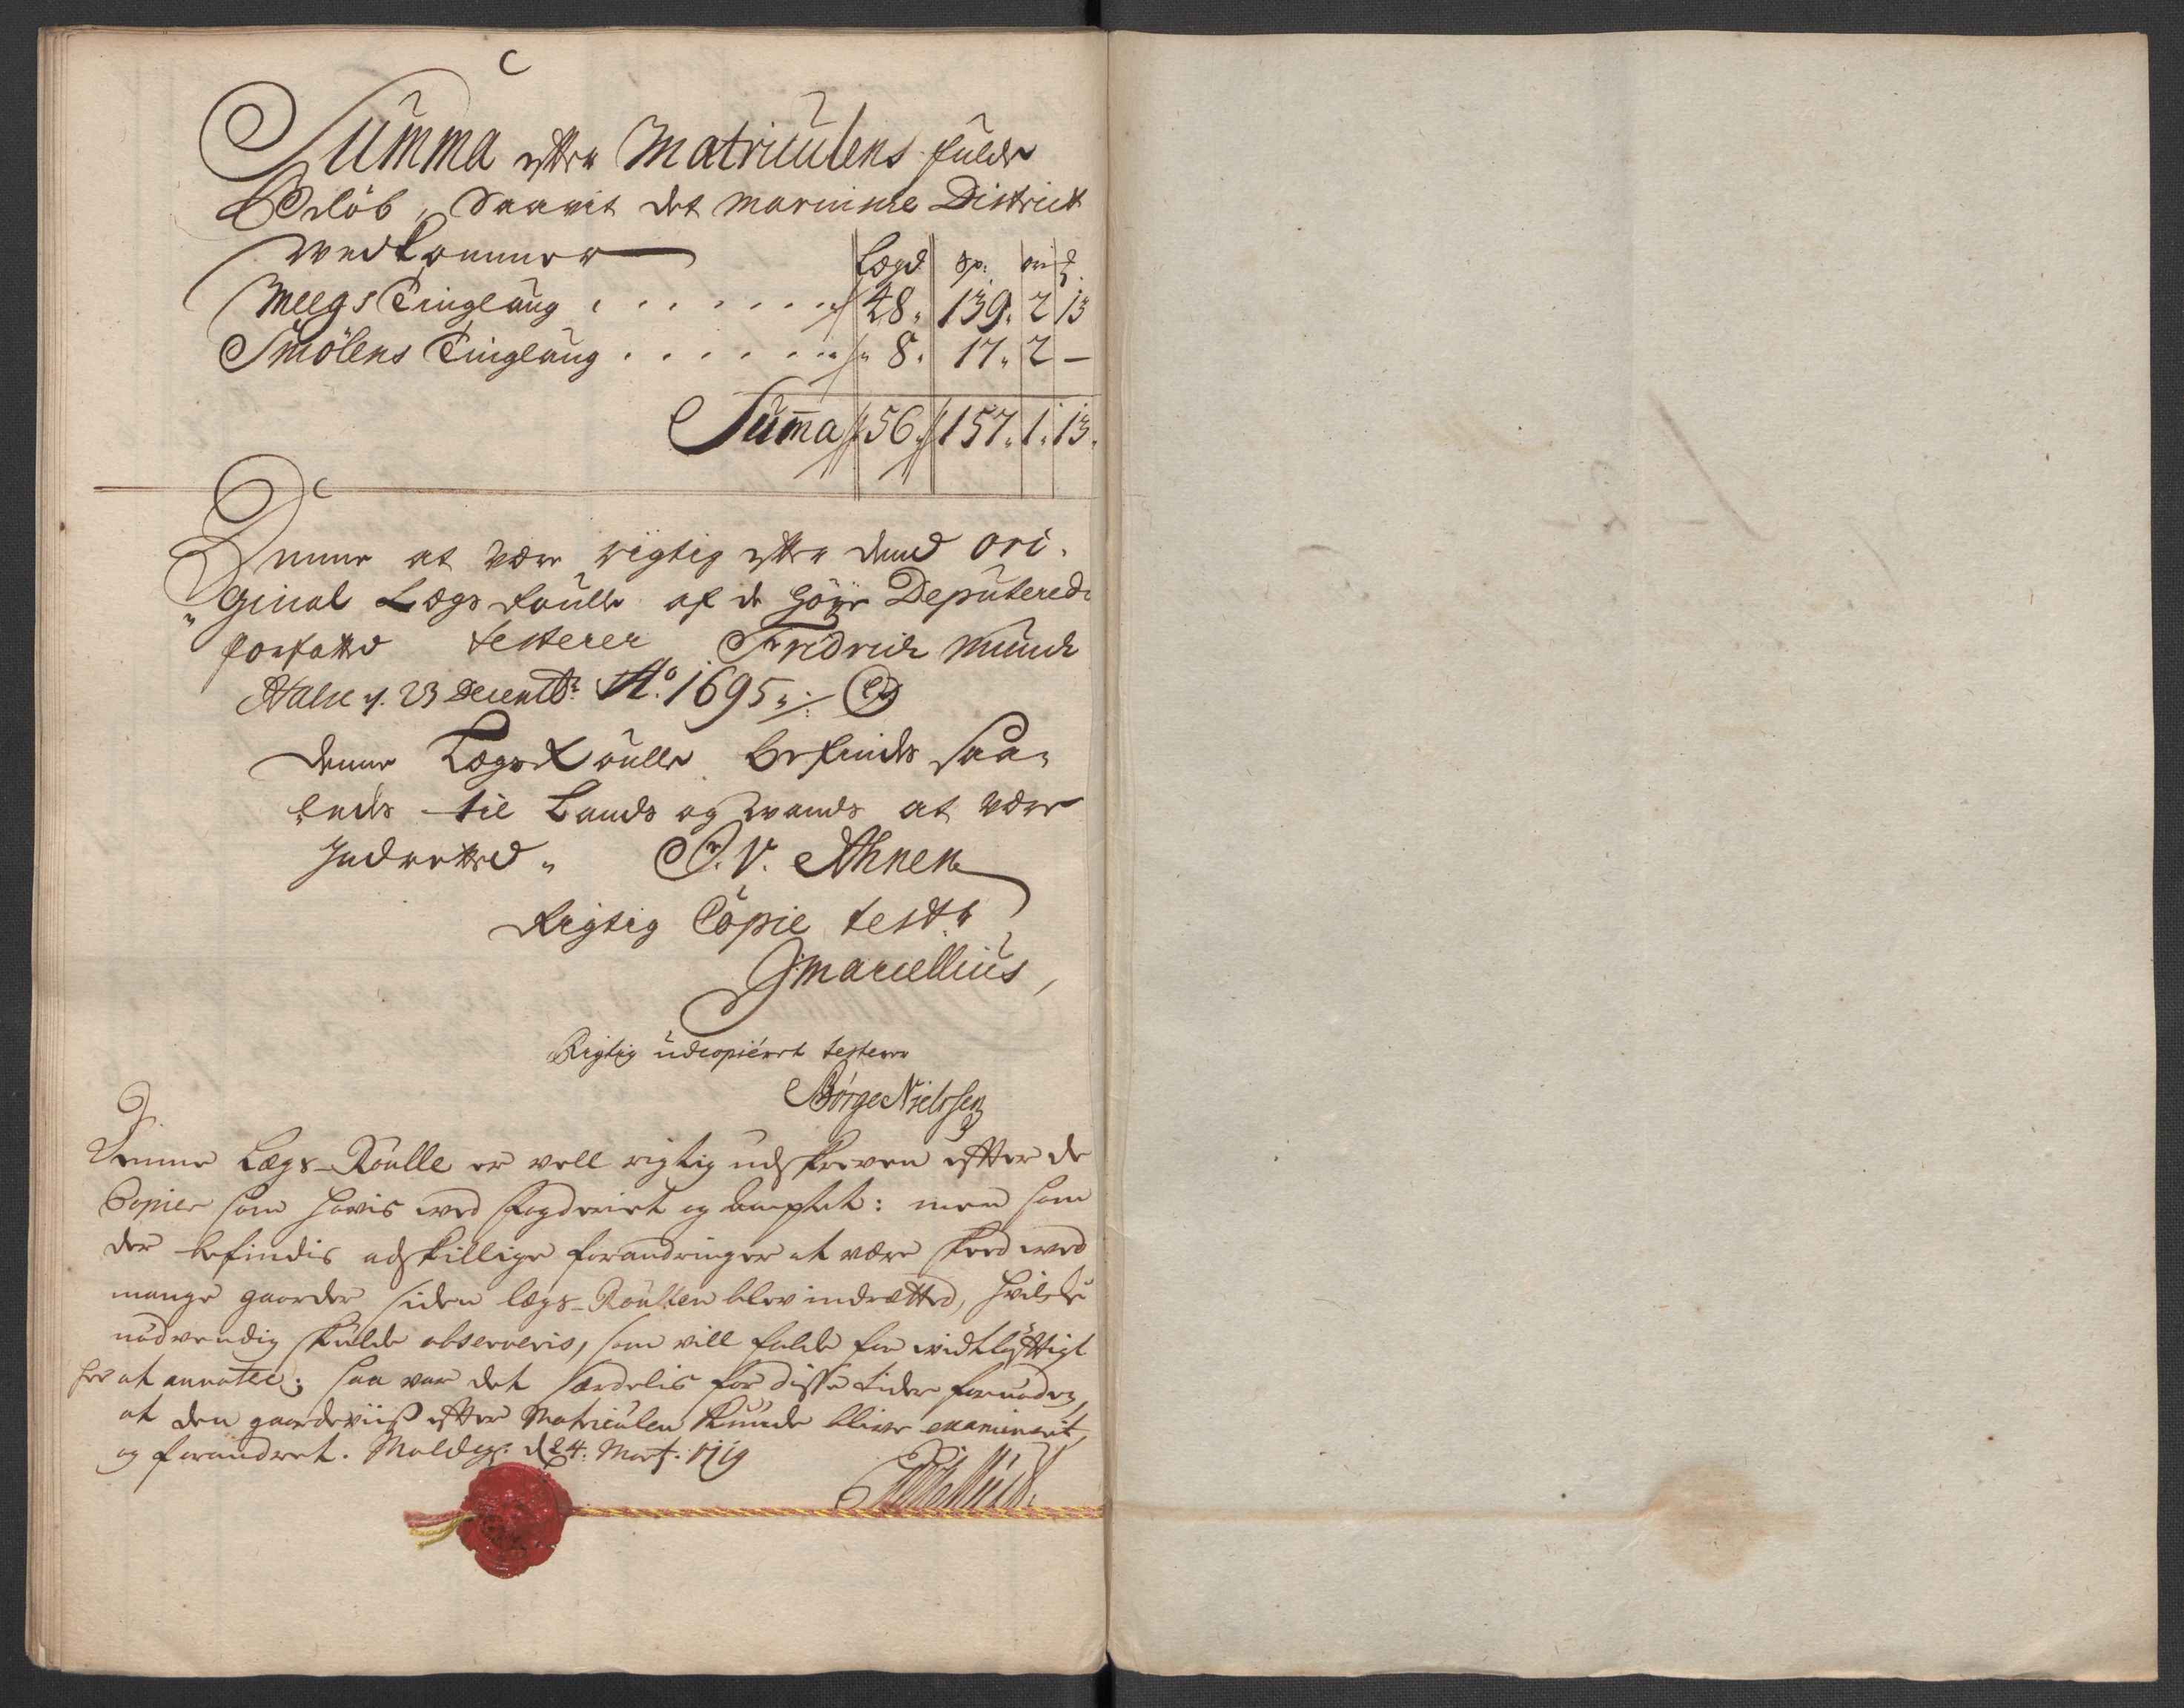 Summa efter Matriculens fulde
Beløb, Saavit det Marinske District
vedkommer
Lægd Sp: ori ₰
Meegs Tinglaug . . . . . . 48. 139. 2 13
Smølens Tinglaug . . . . . . 8. 17. 2 —
Summa 56. 157. 1. 13.
Denne at være rigtig efter dend ori-
ginal Lægs Roulle af de Høye Deputerede
forfatted testerer Fridrich Munch
d. 23 Decembr: Ao. 1695 ./.
Denne Lægs Roulle befindes saa-
ledes til Lands og Vands at være
Indretted. P. V. Ahnen
Rigtig Copie test:r
J: Marcellius,
Rigtig udcopiéret testerer
Børge Nielssen
Denne Lægs-Roulle er vell rigtig udskreven efter de
Copier som havis ved fogderiet og amptet: men som
der befindis adskillige forandringer at være skeed ved
mange gaarder siden lægs-Roullen blev indrætted, hvilcke
nødvendig skulde observeris, som vill falde for vidtløfftigt
her at annotee; saa var det særdelis for disse tider fornøden,
at den gaardeviiß efter Matriculen kunde blive examinerit,
og forandret. Molde d. 24. Mart. 1719